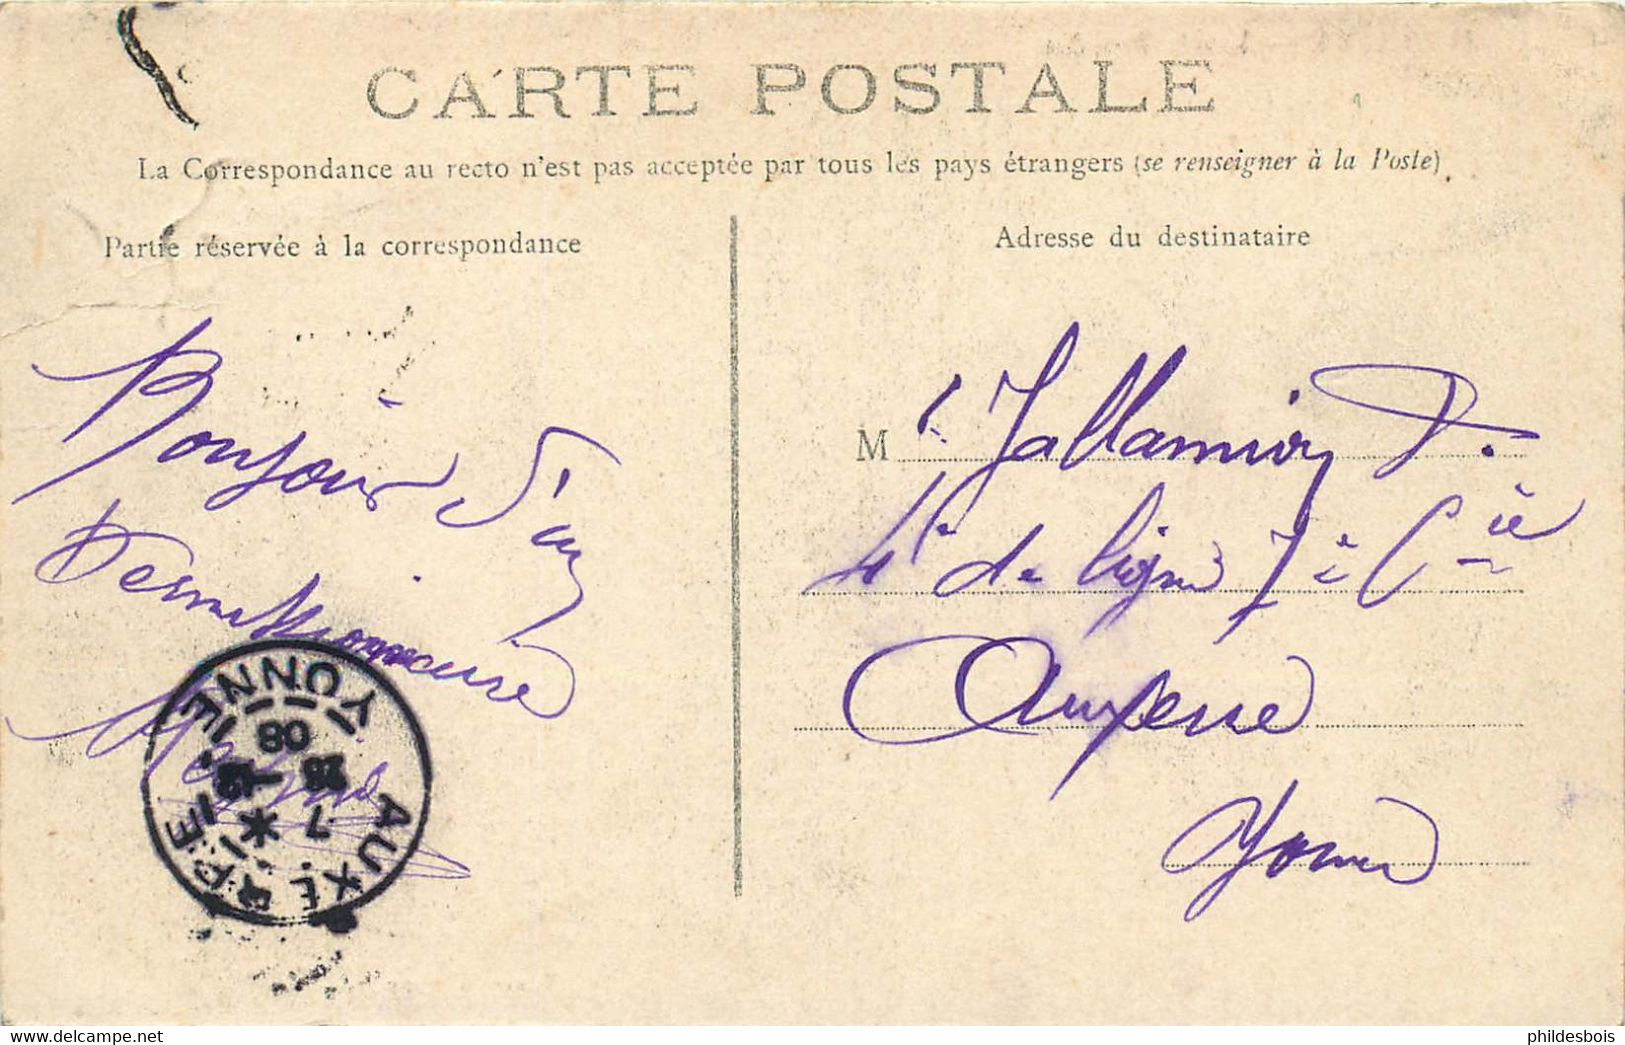 CARTE POSTALE
La Correspondance au recto n'est pas acceptée par tous les pays étrangers (se renseigner à la Poste)
Partie réservée à la correspondance
Adresse du destinataire
Bonjour d'un
M
4e de ligne 7e Cie
Auxerre
Yonne
AUXERRE YONNE
7 *
28 - 12
08
delcampe.net
phildesbois